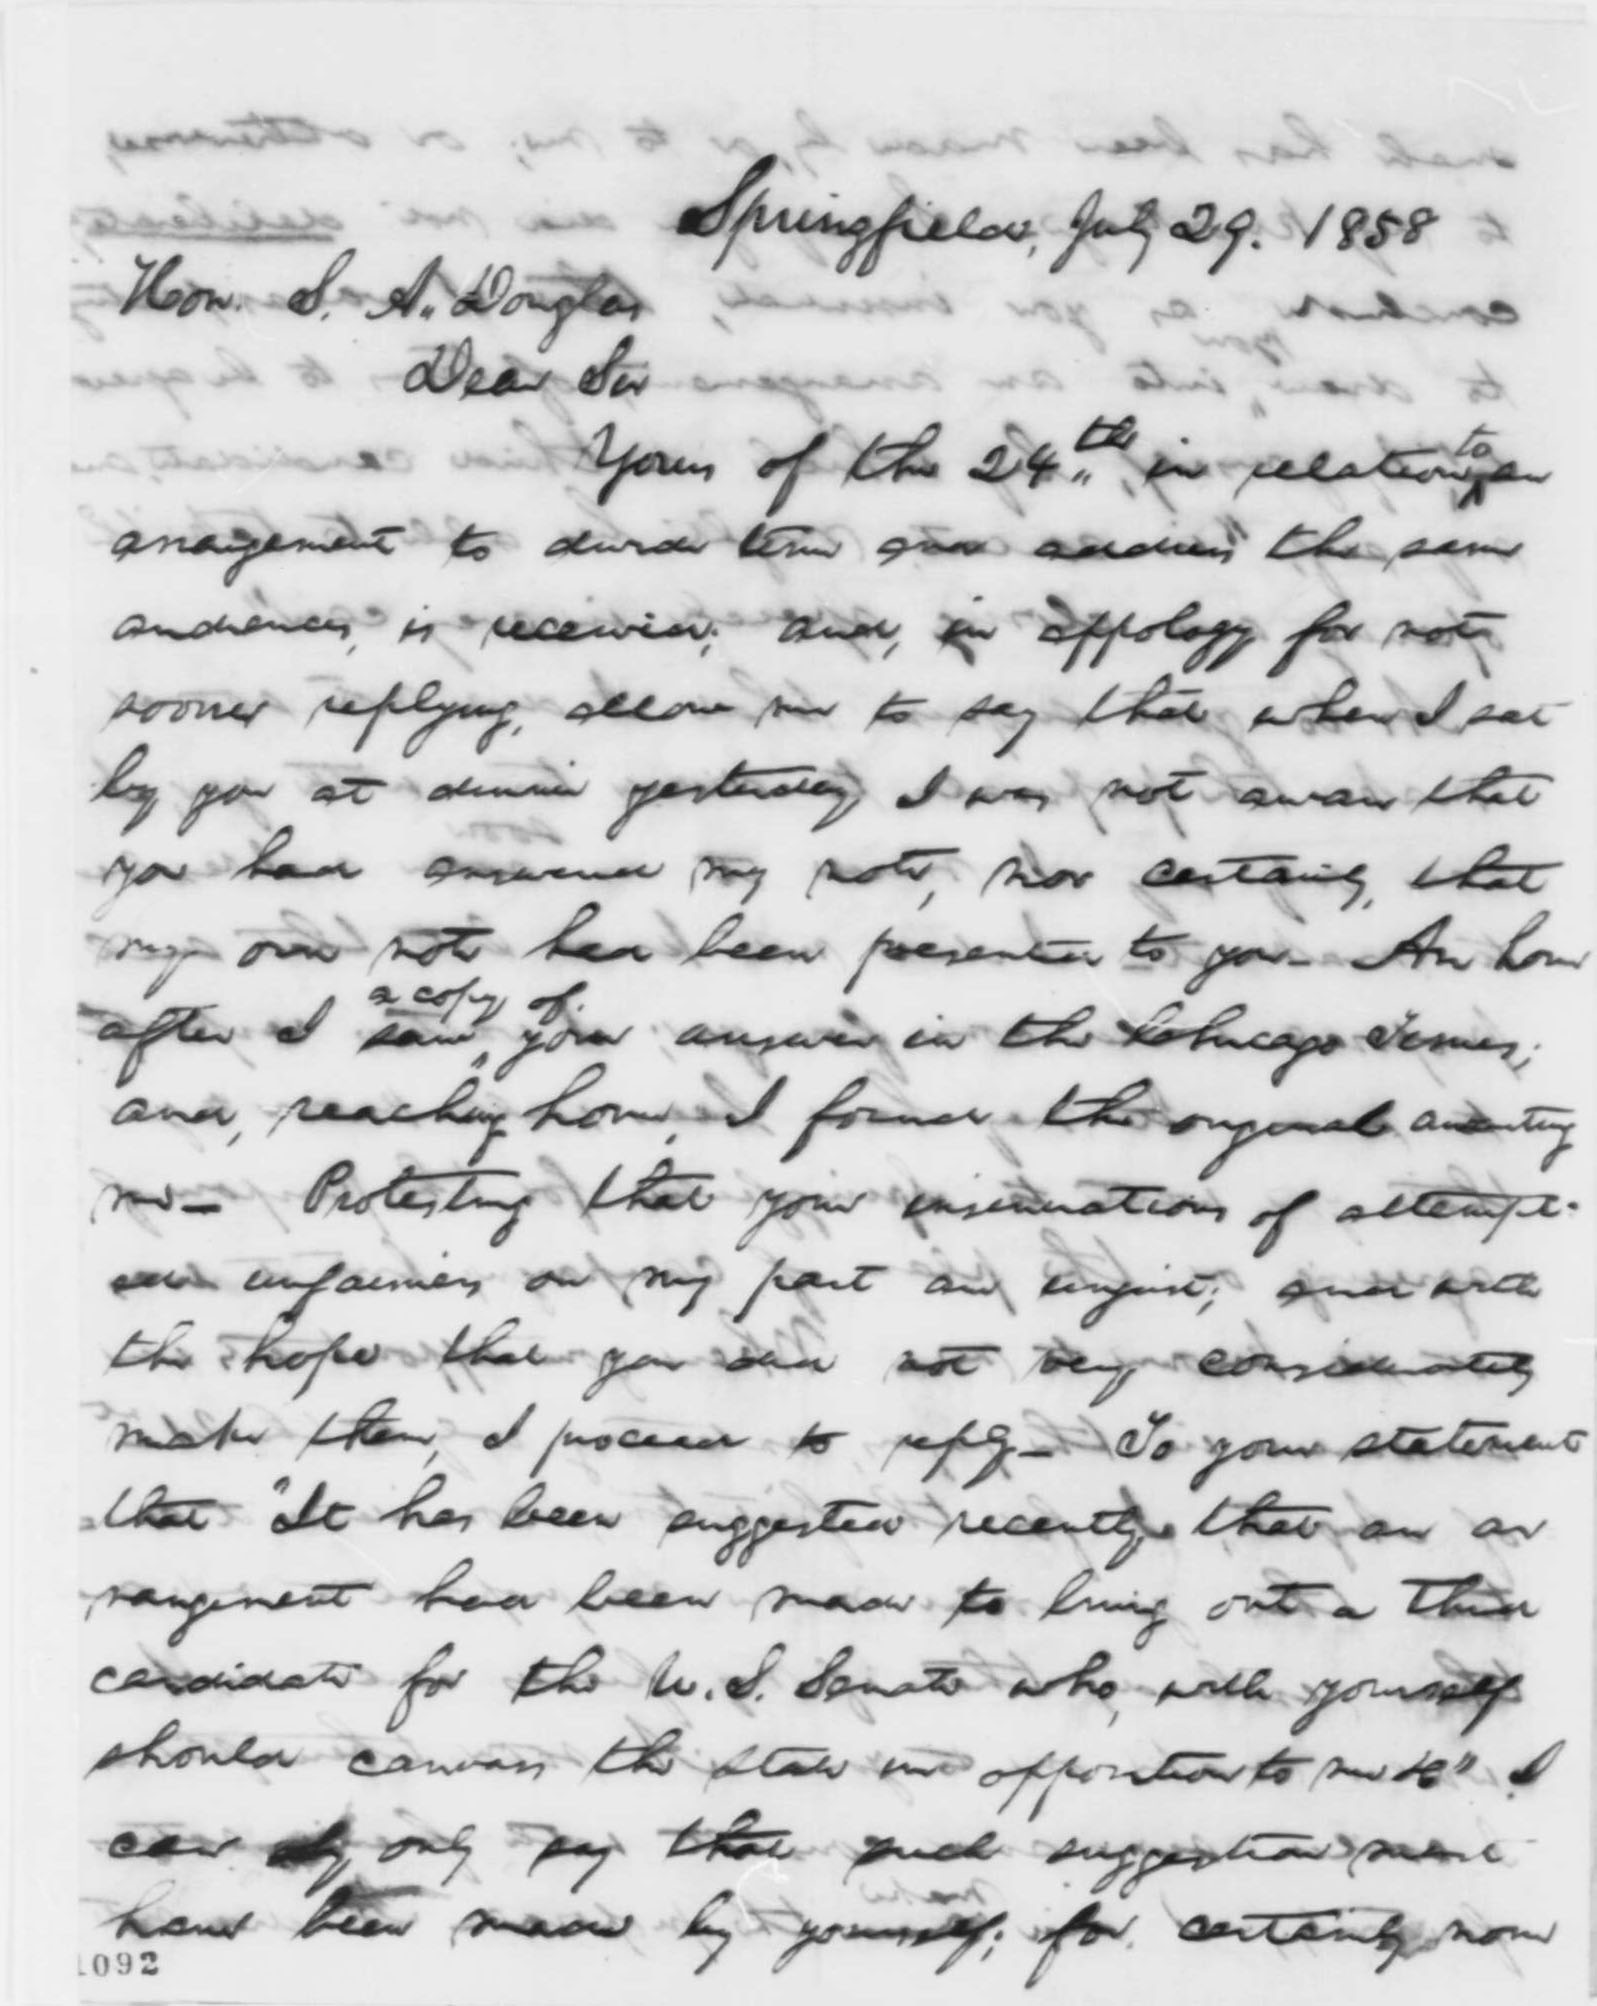 Springfield, July 29. 1858
Hon. S. A. Douglas
Dear Sir
Yours of the 24th in relation to an
arrangement to divide time and address the same
audiences, is received; and, in appology for not
sooner replying, allow me to say that when I sat
by you at dinner yesterday I was not aware that
you had answered my note, nor certainly, that
my own note had been presented to you— An hour
after I saw a copy of your answer in the Chicago Times;
and, reaching home, I found the original awaiting
me— Protesting that your insinuations of attempt-
ed unfairness on my part are unjust; and with
the hope that you did not very considerately
make them, I proceed to reply— To your statement
that "It has been suggested recently that an ar
rangement had been made to bring out a third
candidate for the U. S. Senate who, with yourself
should canvass the state in opposition to me &c" I
can only say that such suggestion must
have been made by yourself; for certainly none
1092